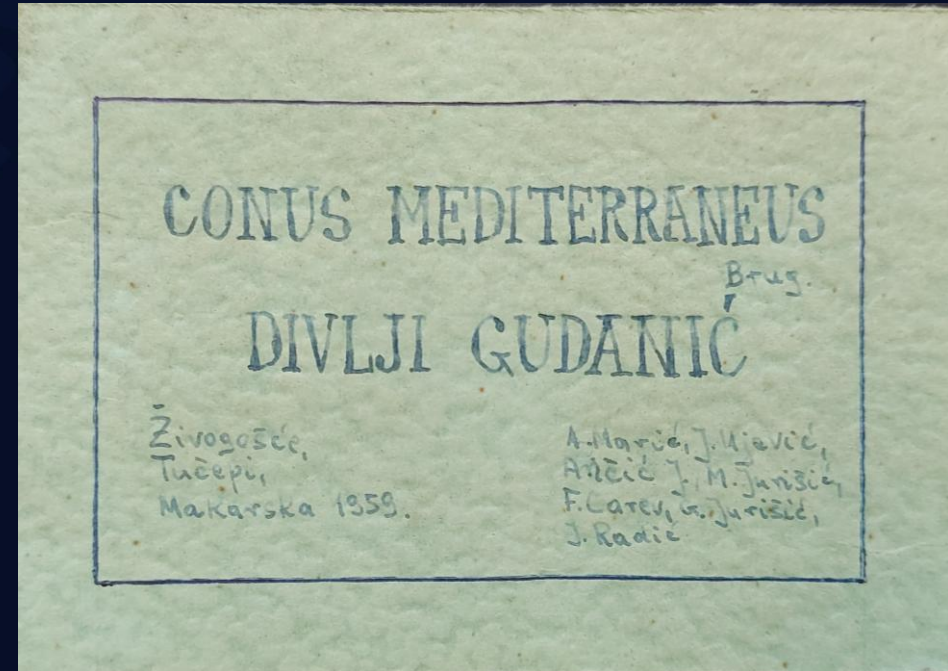 CONUS MEDITERRANEUS
Brug.
DIVLJI GUDANIĆ
Živogošće,
Tučepi,
Makarska 1959.
A. Marić, J. Ujević,
Ančić J., M. Jurišić,
F. Carev, G. Jurišić,
J. Radić